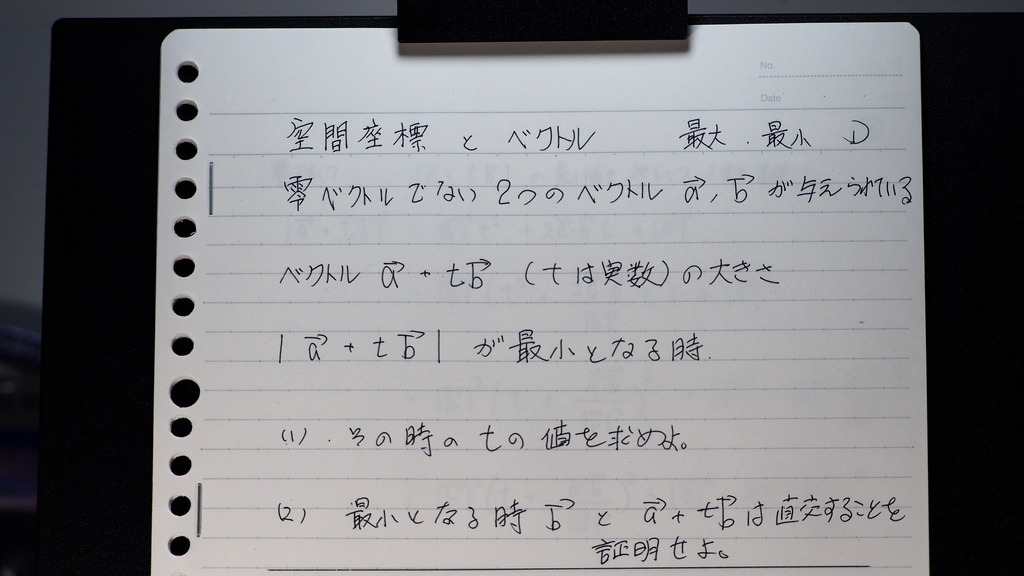 No.
Date
空間座標 と ベクトル 最大.最小
零ベクトルでない2つのベクトル a→, b→ が与えられている
ベクトル a→ + tb→ (tは実数)の大きさ
| a→ + t b→ | が最小となる時.
(1). その時の tの 値を求めよ。
(2) 最小となる時 b→ と a→ + tb→ は直交することを
証明せよ。